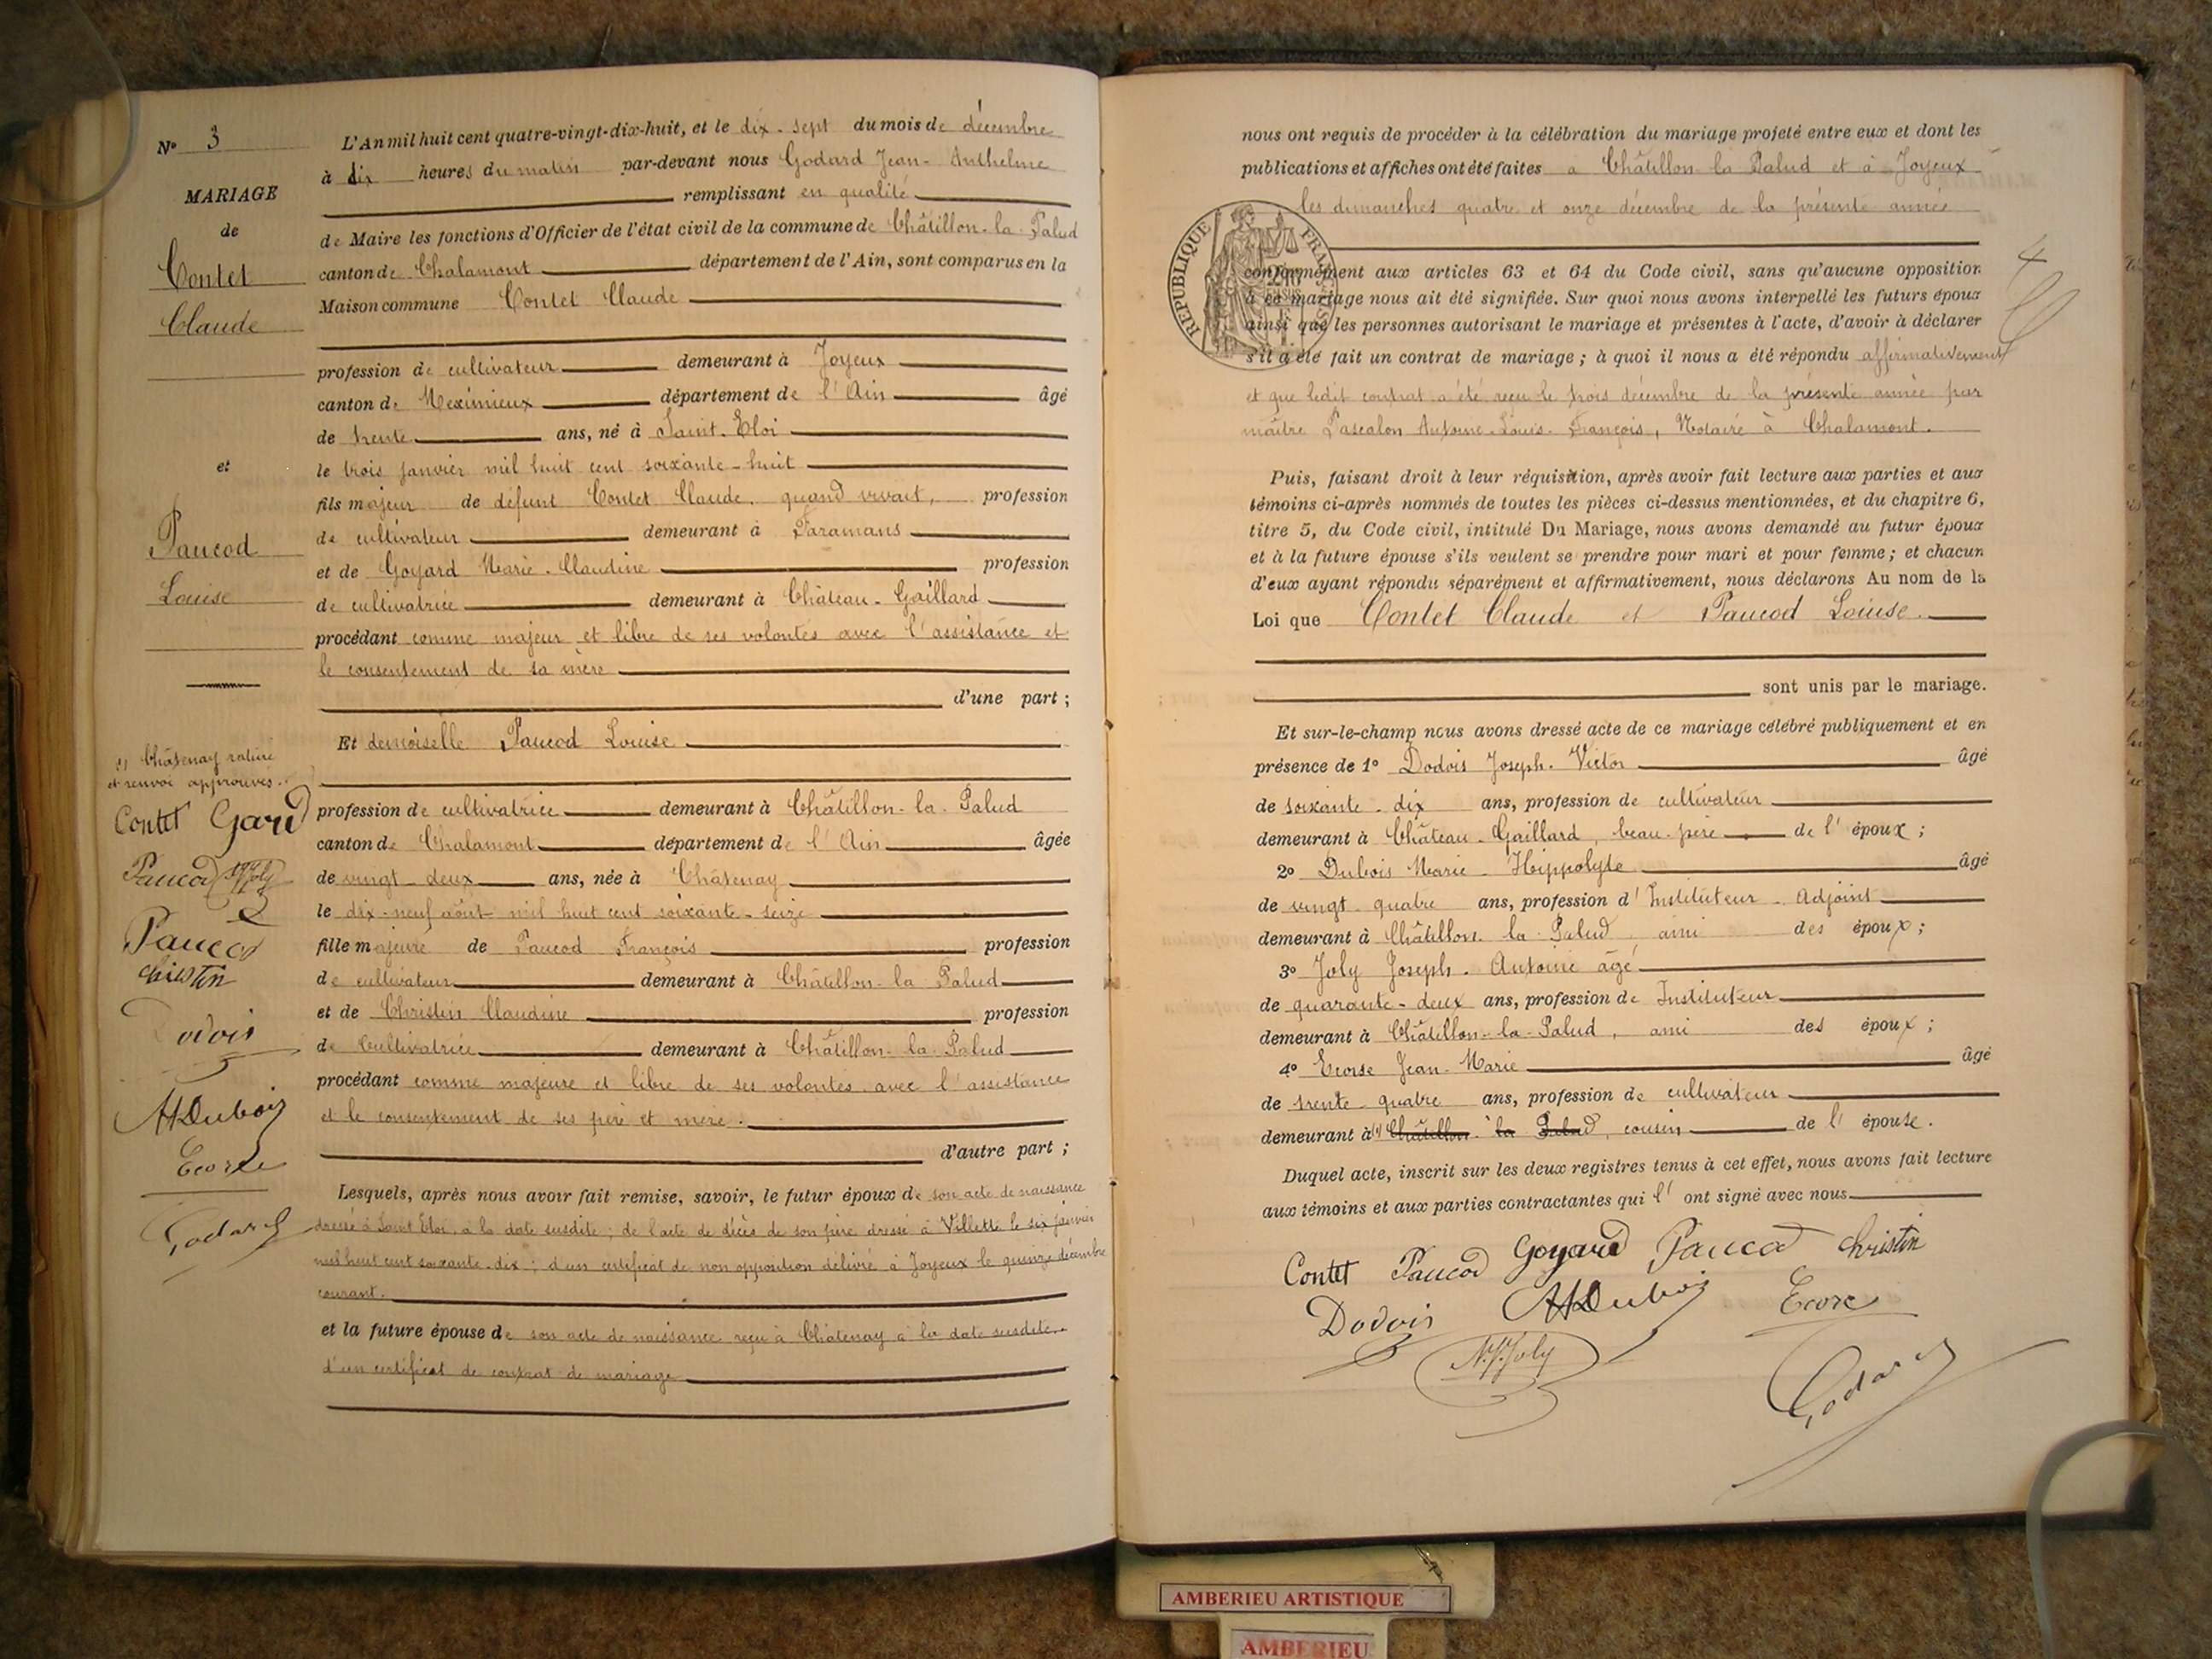 N° 3
MARIAGE
de
Contet
Claude
et
Paucod
Louise
(1) Châtenay rature
et renvoi approuvés.
Contet Goyard
Paucod N.J. Joly
Paucod
Christin
Dodois
MDubois
Ecorse
Godard
L'An mil huit cent quatre-vingt-dix-huit, et le dix-sept du mois de décembre
à dix heures du matin par-devant nous Godard Jean-Anthelme
remplissant en qualité
de Maire les fonctions d'Officier de l'état civil de la commune de Châtillon-la-Palud
canton de Chalamont département de l'Ain, sont comparus en la
Maison commune Contet Claude
profession de cultivateur demeurant à Joyeux
canton de Meximieux département de l'Ain âgé
de trente ans, né à Saint-Eloi
le trois janvier mil huit cent soixante-huit
fils majeur de défunt Contet Claude, quand vivait, profession
de cultivateur demeurant à Faramans
et de Goyard Marie-Claudine profession
de cultivatrice demeurant à Château-Gaillard
procédant comme majeur et libre de ses volontés avec l'assistance et
le consentement de sa mère
d'une part ;
Et demoiselle Paucod Louise
profession de cultivatrice demeurant à Châtillon-la-Palud
canton de Chalamont département de l'Ain âgée
de vingt-deux ans, née à Châtenay
le dix-neuf août mil huit cent soixante-seize
fille majeure de Paucod François profession
de cultivateur demeurant à Châtillon-la-Palud
et de Christin Claudine profession
de Cultivatrice demeurant à Châtillon-la-Palud
procédant comme majeure et libre de ses volontés avec l'assistance
et le consentement de ses père et mère.
d'autre part ;
Lesquels, après nous avoir fait remise, savoir, le futur époux de son acte de naissance
dressé à Saint Eloi, à la date susdite ; de l'acte de décès de son père dressé à Villette le six janvier
mil huit cent soixante-dix ; d'un certificat de non opposition délivré à Joyeux le quinze décembre
courant.
et la future épouse de son acte de naissance reçu à Châtenay à la date susdite.
d'un certificat de contrat de mariage
nous ont requis de procéder à la célébration du mariage projeté entre eux et dont les
publications et affiches ont été faites à Châtillon-la-Palud et à Joyeux
les dimanches quatre et onze décembre de la présente année
RÉPUBLIQUE FRANÇAISE
conformément aux articles 63 et 64 du Code civil, sans qu'aucune opposition
à ce mariage nous ait été signifiée. Sur quoi nous avons interpellé les futurs époux
ainsi que les personnes autorisant le mariage et présentes à l'acte, d'avoir à déclarer
s'il a été fait un contrat de mariage ; à quoi il nous a été répondu affirmativement
et que ledit contrat a été reçu le trois décembre de la présente année par
maître Pascalon Antoine-Louis-François, Notaire à Chalamont.
Puis, faisant droit à leur réquisition, après avoir fait lecture aux parties et aux
témoins ci-après nommés de toutes les pièces ci-dessus mentionnées, et du chapitre 6,
titre 5, du Code civil, intitulé Du Mariage, nous avons demandé au futur époux
et à la future épouse s'ils veulent se prendre pour mari et pour femme ; et chacun
d'eux ayant répondu séparément et affirmativement, nous déclarons Au nom de la
Loi que Contet Claude et Paucod Louise.
sont unis par le mariage.
Et sur-le-champ nous avons dressé acte de ce mariage célébré publiquement et en
présence de 1° Dodois Joseph-Victor âgé
de soixante-dix ans, profession de cultivateur
demeurant à Château-Gaillard, beau-père de l'époux ;
2° Dubois Marie-Hippolyte âgé
de vingt-quatre ans, profession d'Instituteur-Adjoint
demeurant à Châtillon-la-Palud, ami des époux ;
3° Joly Joseph-Antoine âgé
de quarante-deux ans, profession de Instituteur
demeurant à Châtillon-la-Palud, ami des époux ;
4° Ecorse Jean-Marie âgé
de trente-quatre ans, profession de cultivateur
demeurant à (1) Châtillon-la-Palud, cousin de l'épouse.
Duquel acte, inscrit sur les deux registres tenus à cet effet, nous avons fait lecture
aux témoins et aux parties contractantes qui l'ont signé avec nous
Contet Paucod Goyard Paucod Christin
Dodois MDubois Ecorse
N.J. Joly
Godard
AMBERIEU ARTISTIQUE
AMBERIEU